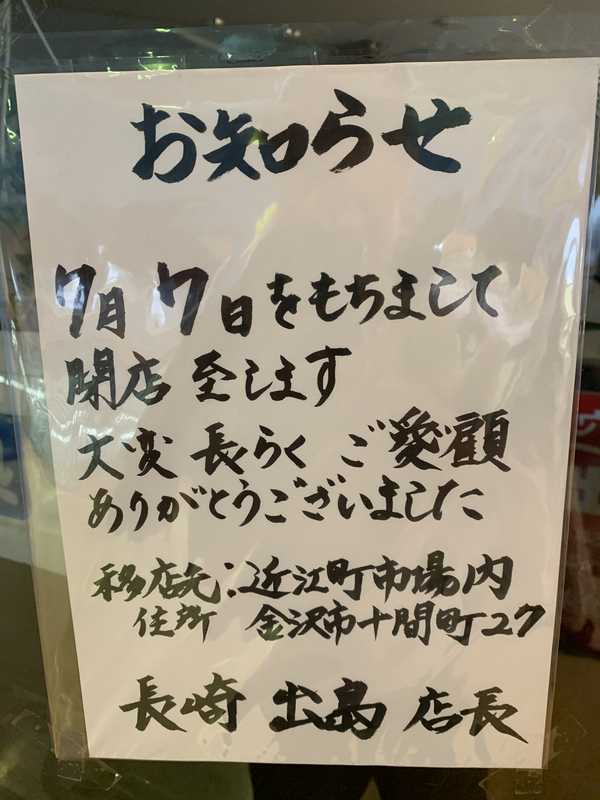 お知らせ
7月7日をもちまして
閉店至します
大変長らくご愛顧
ありがとうございました
移店先:近江町市場内
住所 金沢市十間町27
長崎 出島 店長